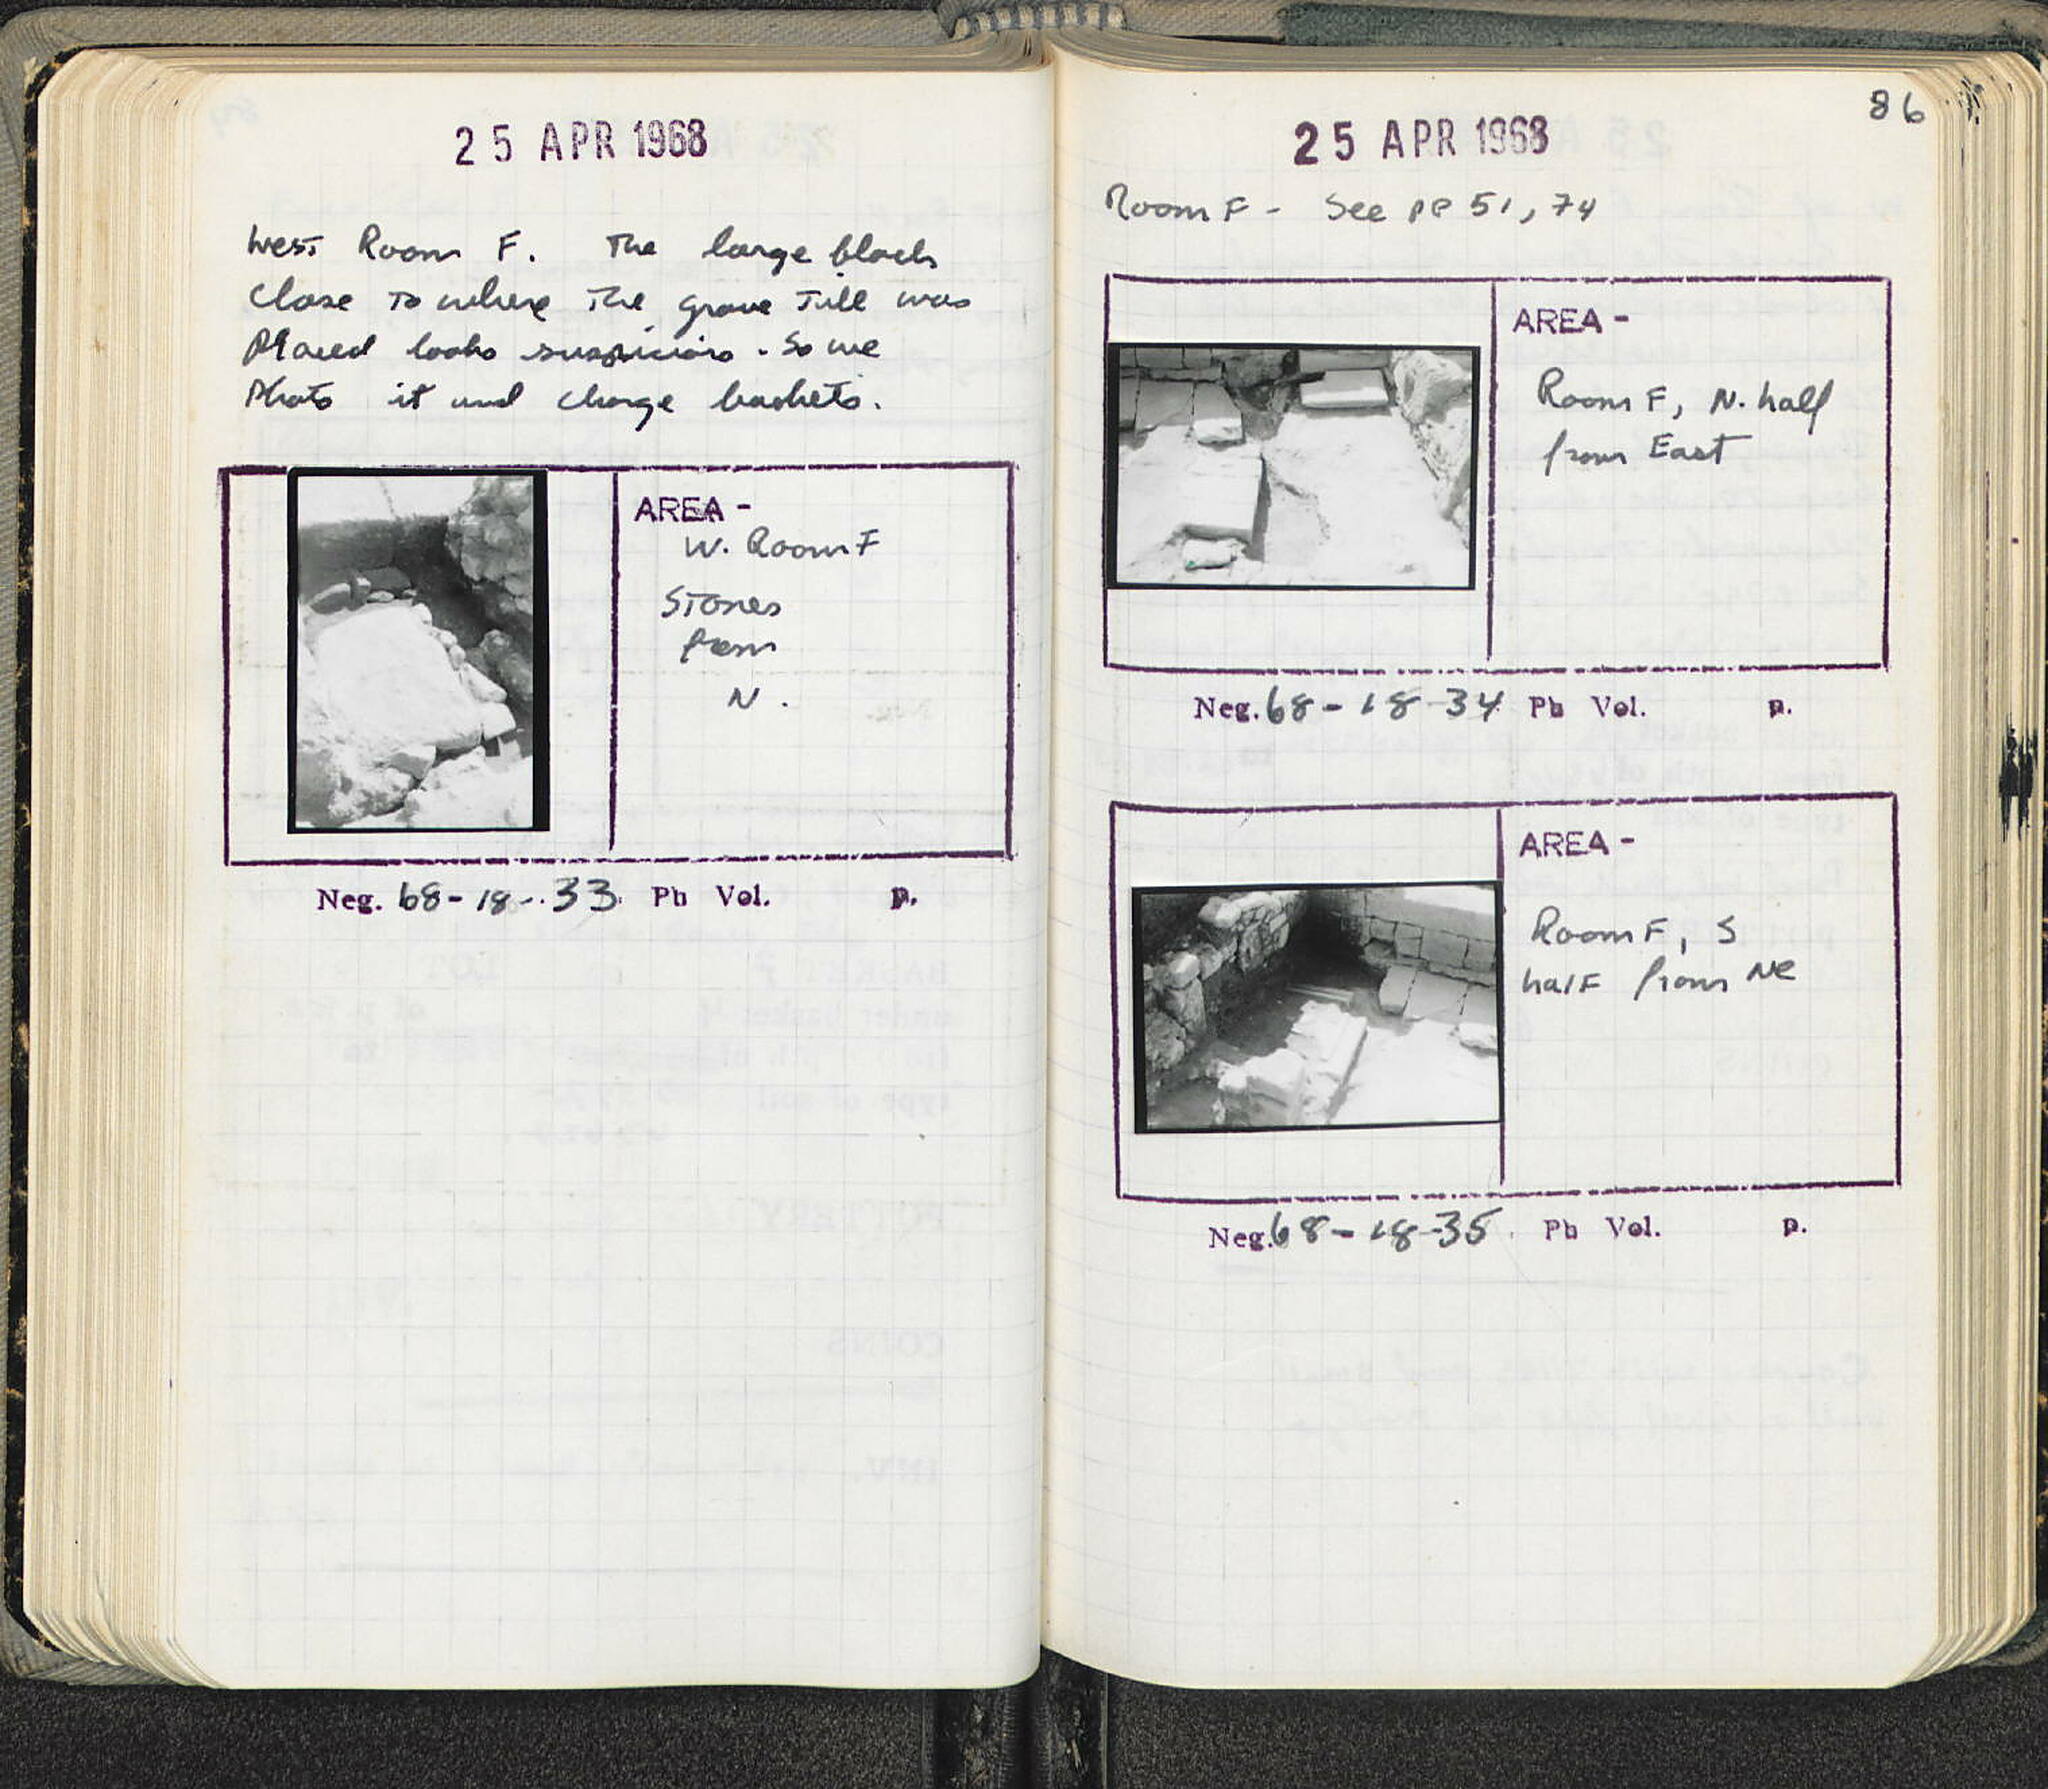 25 APR 1968
West Room F. The large block
close to where the grave tile was
placed looks suspicious. So we
photo it and change baskets.
AREA -
W. Room F
Stones
from
N.
Neg. 68-18-33 Ph Vol. p.
86
25 APR 1968
Room F - See pp 51, 74
AREA -
Room F, N. half
from East
Neg. 68-18-34 Ph Vol. p.
AREA -
Room F, S
half from NE
Neg. 68-18-35 Ph Vol. p.